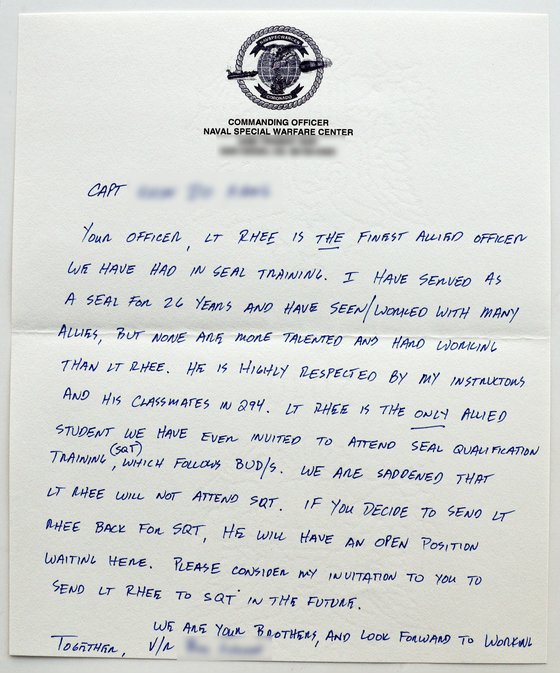 COMMANDING OFFICER
NAVAL SPECIAL WARFARE CENTER
CAPT
YOUR OFFICER, LT RHEE IS THE FINEST ALLIED OFFICER
WE HAVE HAD IN SEAL TRAINING. I HAVE SERVED AS
A SEAL FOR 26 YEARS AND HAVE SEEN/WORKED WITH MANY
ALLIES, BUT NONE ARE MORE TALENTED AND HARD WORKING
THAN LT RHEE. HE IS HIGHLY RESPECTED BY MY INSTRUCTORS
AND HIS CLASSMATES IN 294. LT RHEE IS THE ONLY ALLIED
STUDENT WE HAVE EVER INVITED TO ATTEND SEAL QUALIFICATION
TRAINING (SQT), WHICH FOLLOWS BUD/S. WE ARE SADDENED THAT
LT RHEE WILL NOT ATTEND SQT. IF YOU DECIDE TO SEND LT
RHEE BACK FOR SQT, HE WILL HAVE AN OPEN POSITION
WAITING HERE. PLEASE CONSIDER MY INVITATION TO YOU TO
SEND LT RHEE TO SQT IN THE FUTURE.
WE ARE YOUR BROTHERS, AND LOOK FORWARD TO WORKING
TOGETHER, V/R